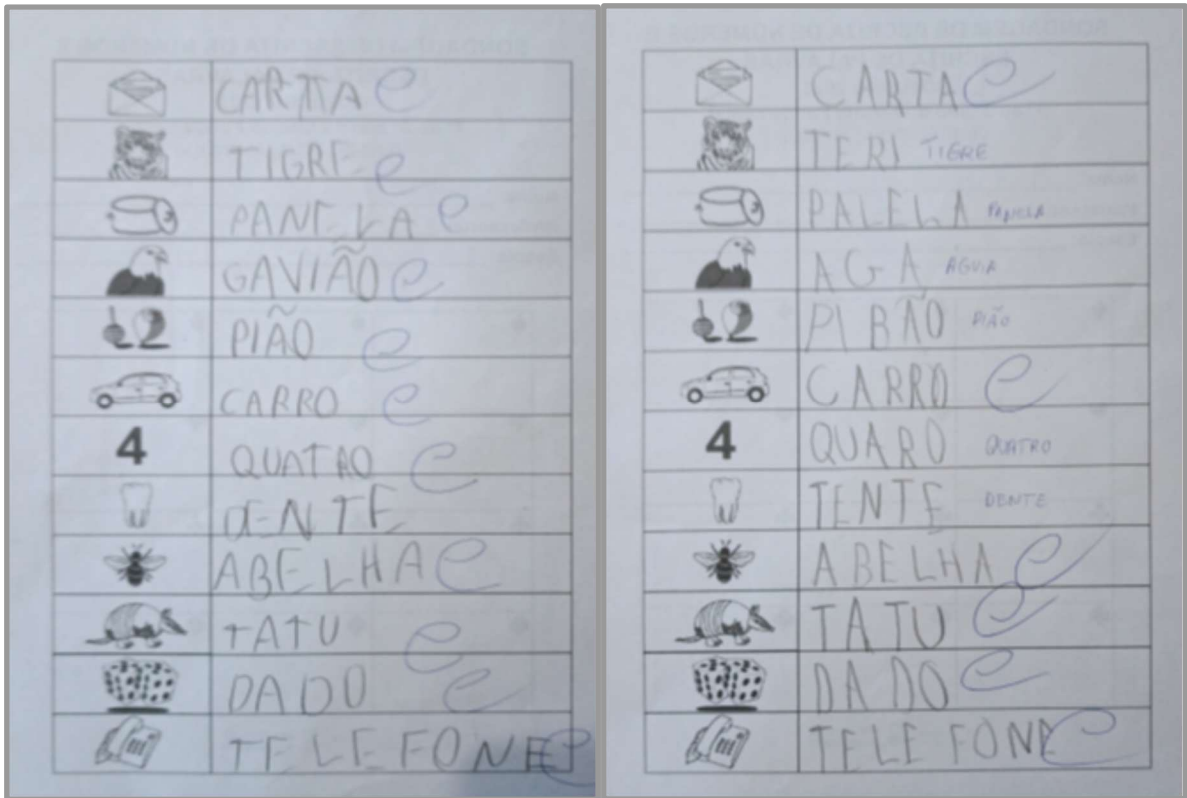 CARTA
TIGRE
PANELA
GAVIÃO
PIÃO
CARRO
4 QUATRO
DENTE
ABELHA
TATU
DADO
TELEFONE
CARTA
TERI TIGRE
PALELA PANELA
AGA AGUIA
PIBÃO PIÃO
CARRO
4 QUARO QUATRO
TENTE DENTE
ABELHA
TATU
DADO
TELEFONE